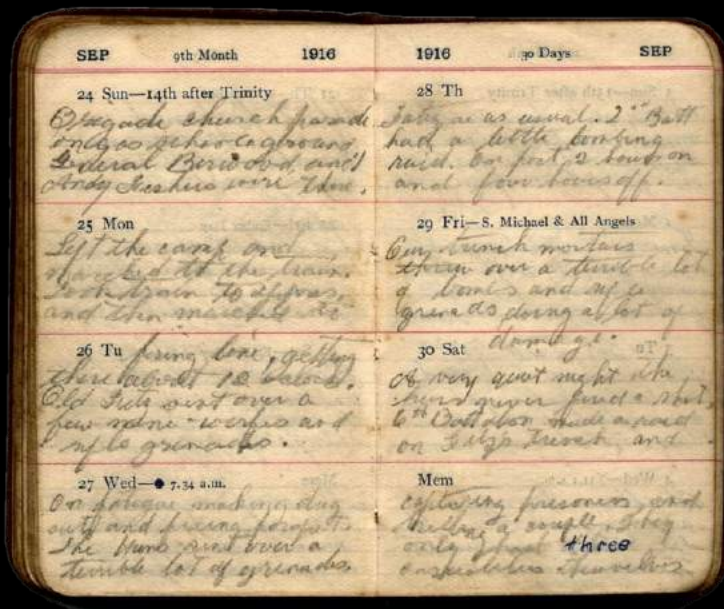 SEP 9th Month 1916
24 Sun—14th after Trinity
Brigade church parade
on gas school ground
General Birdwood and
Andy Fishers were there.
25 Mon
Left the camp and
marched to the train.
Took train to Ypres,
and then marched to
26 Tu firing line, getting
there about 12 o'clock.
Old Fritz sent over a
few mine werfes and
rifle grenades.
27 Wed—● 7.34 a.m.
On fatigue making dug
outs and
The Huns sent over a
terrible lot of grenades.
1916 30 Days SEP
28 Th
as usual. 2nd Batt
had a little bombing
raid. On post 2 hours on
and four hours off.
29 Fri—S. Michael & All Angels
Our trench mortars
threw over a terrible lot
of bombs and rifle
grenads doing a lot of
damage.
30 Sat
A very quiet night the
never fired a shot.
6th Battalion made a raid
on Fritz's trench and
Mem
capturing prisoners and
killing a couple. They
only had three
casualties themselves